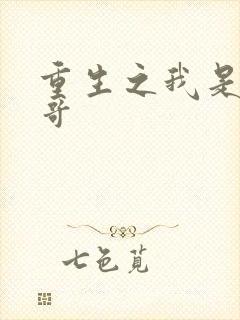 重生之我是
哥
七色苋